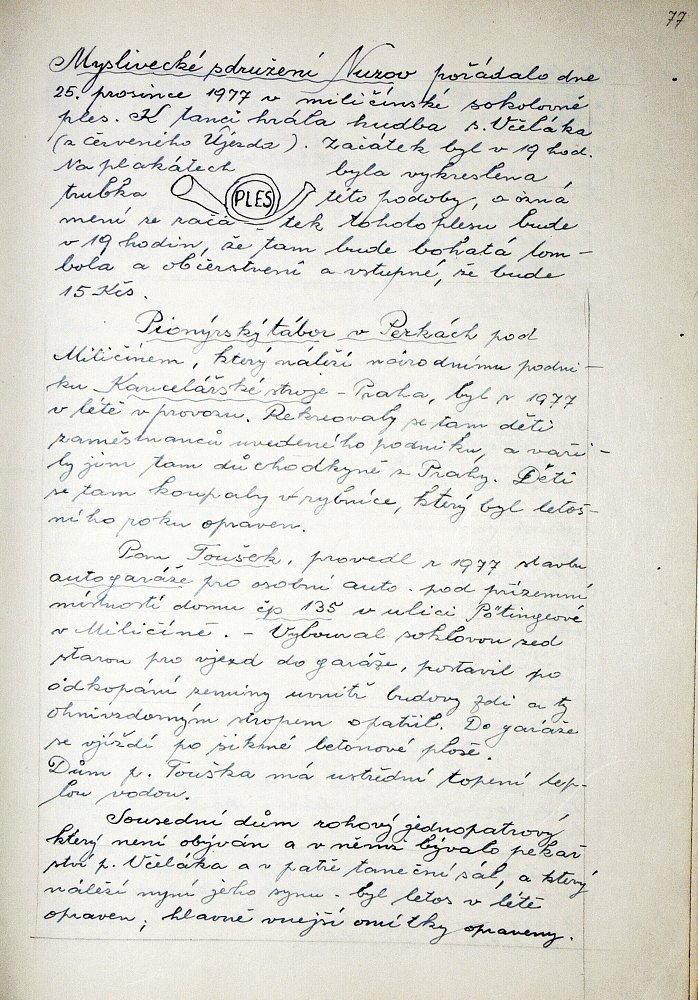 77
Myslivecké sdružení Nuzov pořádalo dne
25. prosince 1977 v miličínské sokolovně
ples. K tanci hrála hudba s. Včeláka
(z červeného Újezda). Začátek byl v 19 hod.
Na plakátech byla vykreslena
trubka PLES této podoby, a ozná
mení se začá - tek tohoto plesu bude
v 19 hodin, že tam bude bohatá tom-
bola a občerstvení a vstupné, že bude
15 Kčs.
Pionýrský tábor v Perkách pod
Miličínem, který náleží národnímu podni-
ku Kancelářské stroje - Praha, byl r 1977
v létě v provozu. Rekreovaly se tam děti
zaměstnanců uvedeného podniku, a vaři-
ly jim tam důchodkyně z Prahy. Děti
se tam koupaly v rybníce, který byl letoš-
ního roku opraven.
Pan Toušek, provedl r 1977 stavbu
autogaráže pro osobní auto. pod přízemní
místností domu čp 135 v ulici Pötingeově
v Miličíně. - Vyboural soklovou zeď
starou pro vjezd do garáže, postavil po
odkopání zeminy uvnitř budovy zdi a ty
ohnivzdorným stropem opatřil. Do garáže
se vjíždí po šikmé betonové ploše.
Dům p. Touška má ustřední topení tep-
lou vodou.
Sousední dům rohový jednopatrový
který není obýván a v němž bývalo pekař
ství p. Včeláka a v patře taneční sál, a který
náleží nyní jeho synu. byl letos v létě
opraven; hlavně vnější omítky opraveny.